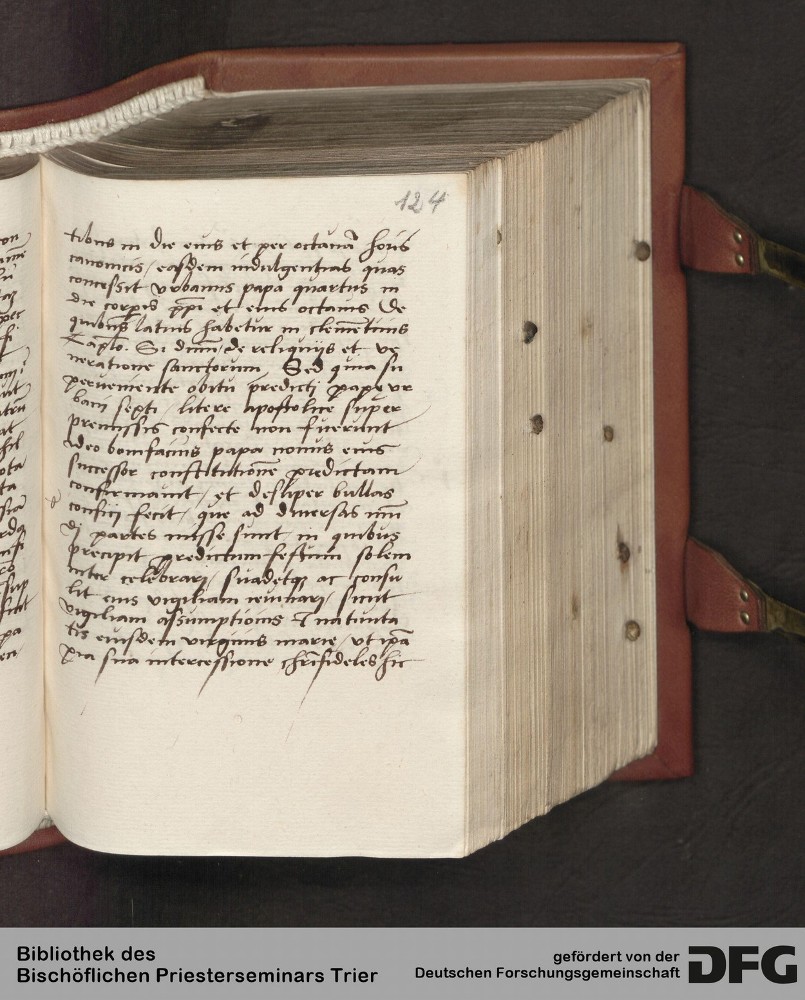 124
tibus in die eius et per octauā horis
canonicis / easdem indulgentias quas
concessit vrbanus papa quartus in
die corpis xpi et eius octauis De
quibus latius habetur in clementinis
Si dnm / de reliquijs et ve
neratione sanctorum Sed quia su
perueniente obitu predicti pape vr
bani sexti / litere apostolice super
premissis confecte non fuerunt
ideo bonifacius papa nonus eius
successor constitutionē predictam
confirmauit / et desuper bullas
confici fecit / que ad diuersas mū
di partes misse sunt / in quibus
precipit predictum festum solem
niter celebrari / suadetqz ac consu
lit eius vigiliam ieiunari / sicut
vigiliam assumptionis & natiuita
tis eiusdem virginis marie / vt ipā
pia sua intercessione chrīfideles hic
Bibliothek des
Bischöflichen Priesterseminars Trier
gefördert von der
Deutschen Forschungsgemeinschaft
DFG